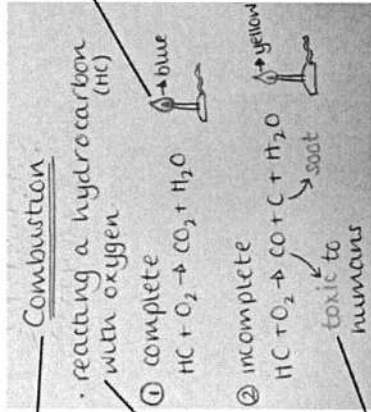 Combustion
· reacting a hydrocarbon
(HC)
with oxygen.
① complete
→blue
HC + O₂ → CO₂ + H₂O
② incomplete
→yellow
HC + O₂ → CO + C + H₂O
soot
toxic to
humans